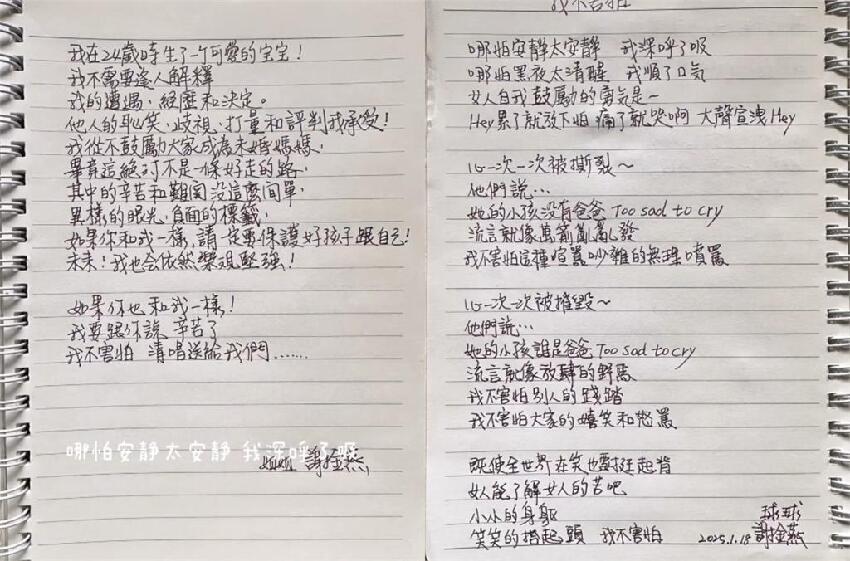 我在24歲時生了一个可愛的宝宝!
我不需要逢人解釋
我的遭遇,經歷和決定。
他人的恥笑,歧視,打量和評判我承受!
我從不鼓勵大家成為未婚媽媽,
畢竟這絕对不是一條好走的路,
其中的辛苦和難関没這麼簡單,
異樣的眼光,負面的標籤,
如果你和我一樣,請一定要保護好孩子跟自己!
未来!我也会依然樂觀堅強!
如果你也和我一樣!
我要跟你說 辛苦了
我不害怕 清唱送給我們......
哪怕安静太安静 我深呼了吸
姐姐 謝金燕
我不害怕
哪怕安静太安静 我深呼了吸
哪怕黑夜太清醒 我順了口氣
女人自我鼓勵的勇氣是~
Hey累了就放下怕 痛了就哭啊 大聲宣洩Hey
心一次一次被撕裂~
他們說...
她的小孩没有爸爸 Too sad to cry
流言就像萬箭亂亂發
我不害怕這種喧囂吵雜的無理噴罵
心一次一次被摧毀~
他們說...
她的小孩誰是爸爸 Too sad to cry
流言就像放肆的野馬
我不害怕別人的踐踏
我不害怕大家的嬉笑和怒罵
既使全世界在笑也要挺起背
女人能了解女人的苦吧
小小的身軀 球球
笑笑的抬起頭 我不害怕 2025.1.18 謝金燕